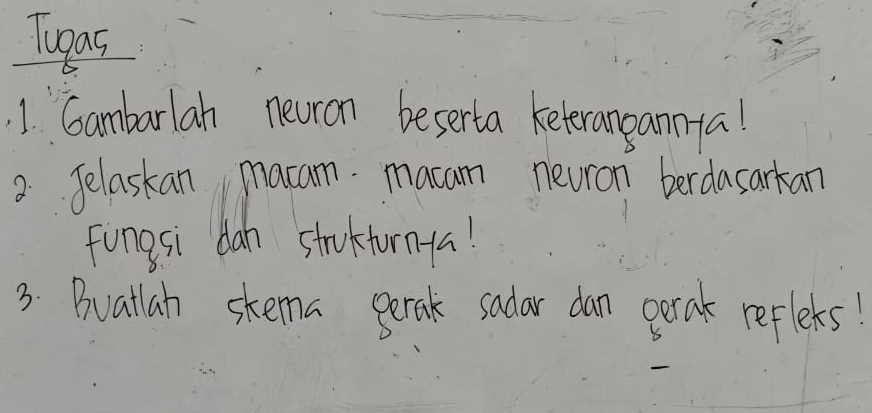 Tugas :
1. Gambarlah neuron beserta keterangannya!
2. Jelaskan macam - macam neuron berdasarkan
fungsi dan strukturnya!
3. Buatlah skema gerak sadar dan gerak refleks!